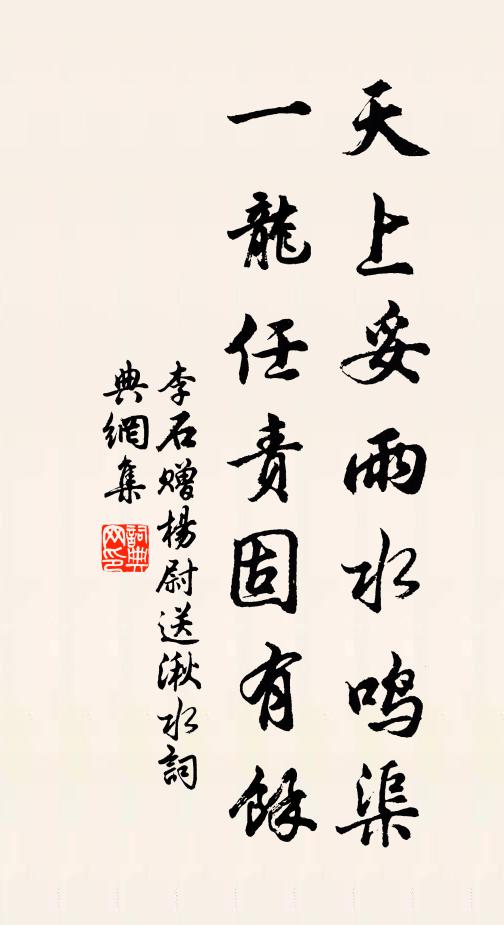 天上妥雨水鸣渠
一龍任责固有餘
李石赠楊尉送湫水詞
典網集
詞典网印